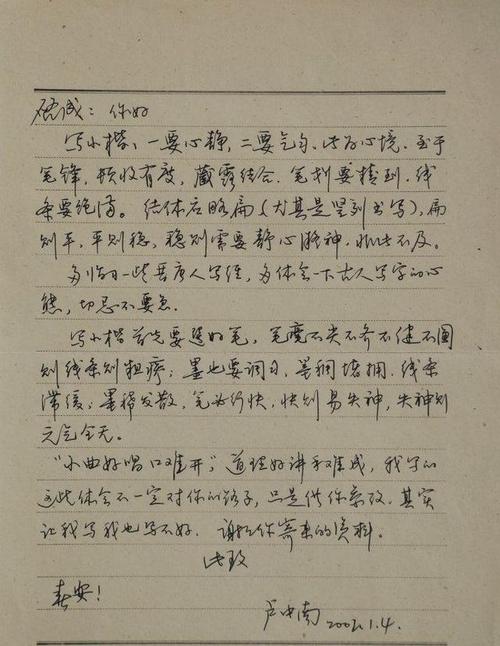 启成：你好
写小楷，一要心静，二要气匀，此为心境。至于
笔锋，放收有度，藏露结合，笔划要精到，线
条要绝清。结体应略扁（尤其是竖列书写），扁
则平，平则稳，稳则需要静心凝神，非此不及。
多临一些晋唐人写经，多体会一下古人写字的心
态，切忌不要急。
写小楷首先要选好笔，笔麾不尖不齐不健不圆
则线条则粗疼；墨也要调习，墨稠堵拥，线条
滞缓；墨稀发散，笔必行快，快则易失神，失神则
元气全无。
“小曲好唱口难开”，道理好讲 难成，我写的
这些体会不一定对你的路子，只是供你参改。其实
让我写我也写不好。谢谢你寄来的资料。
此致
春安！
卢中南 2002.1.4.